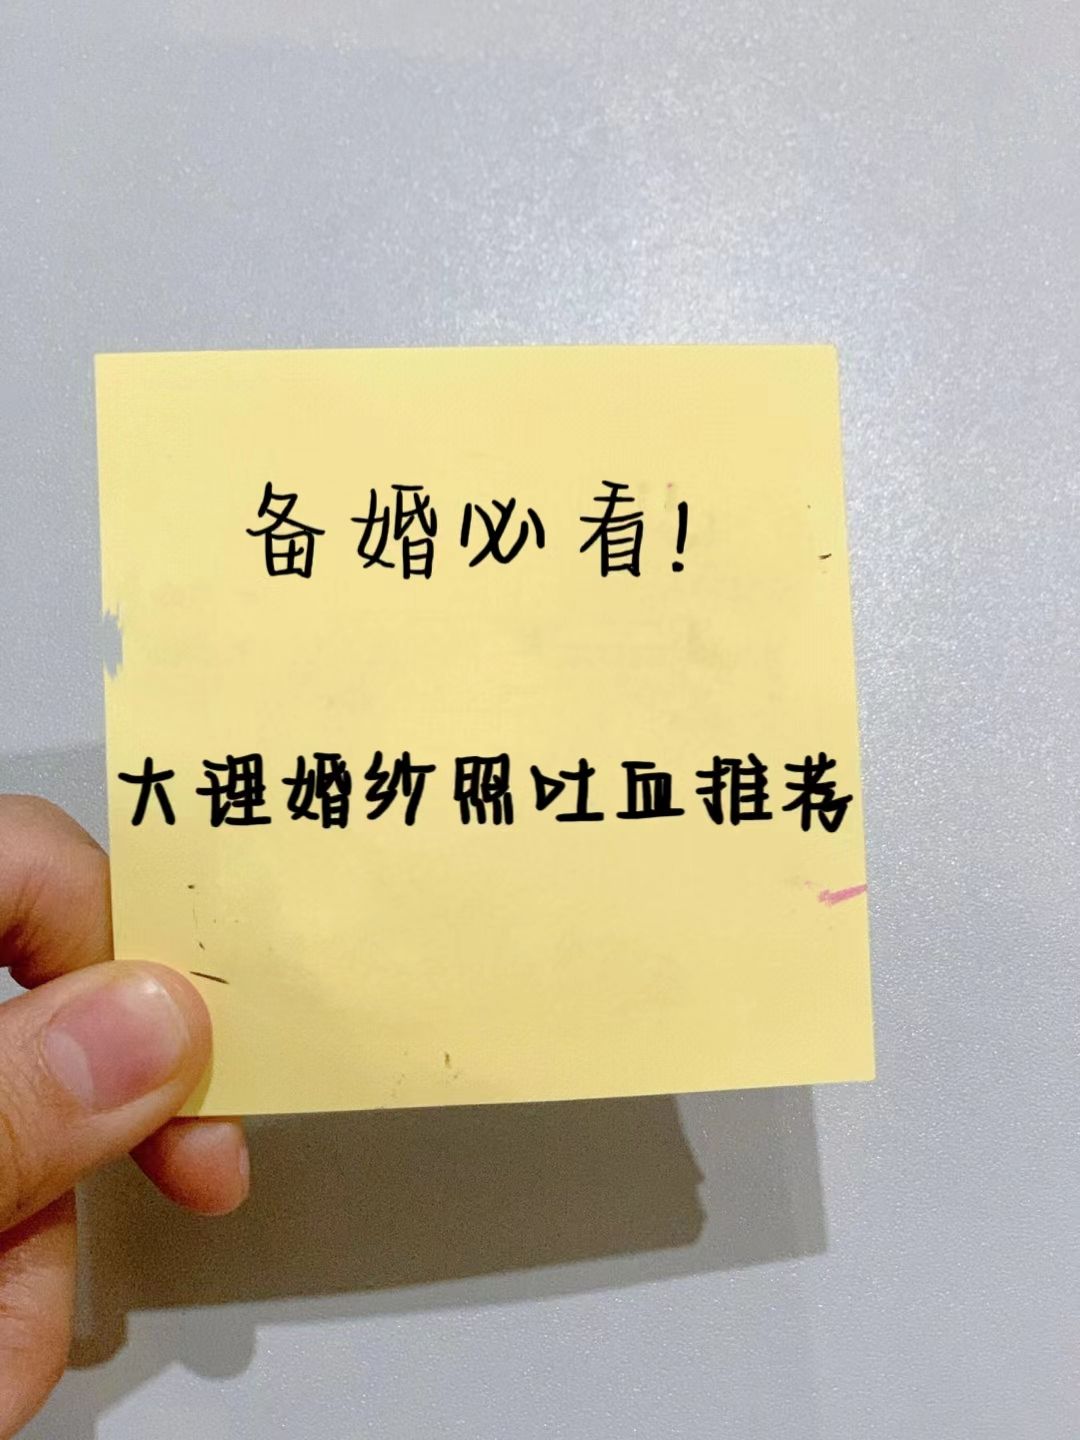 备婚必看!
大理婚纱照吐血推荐